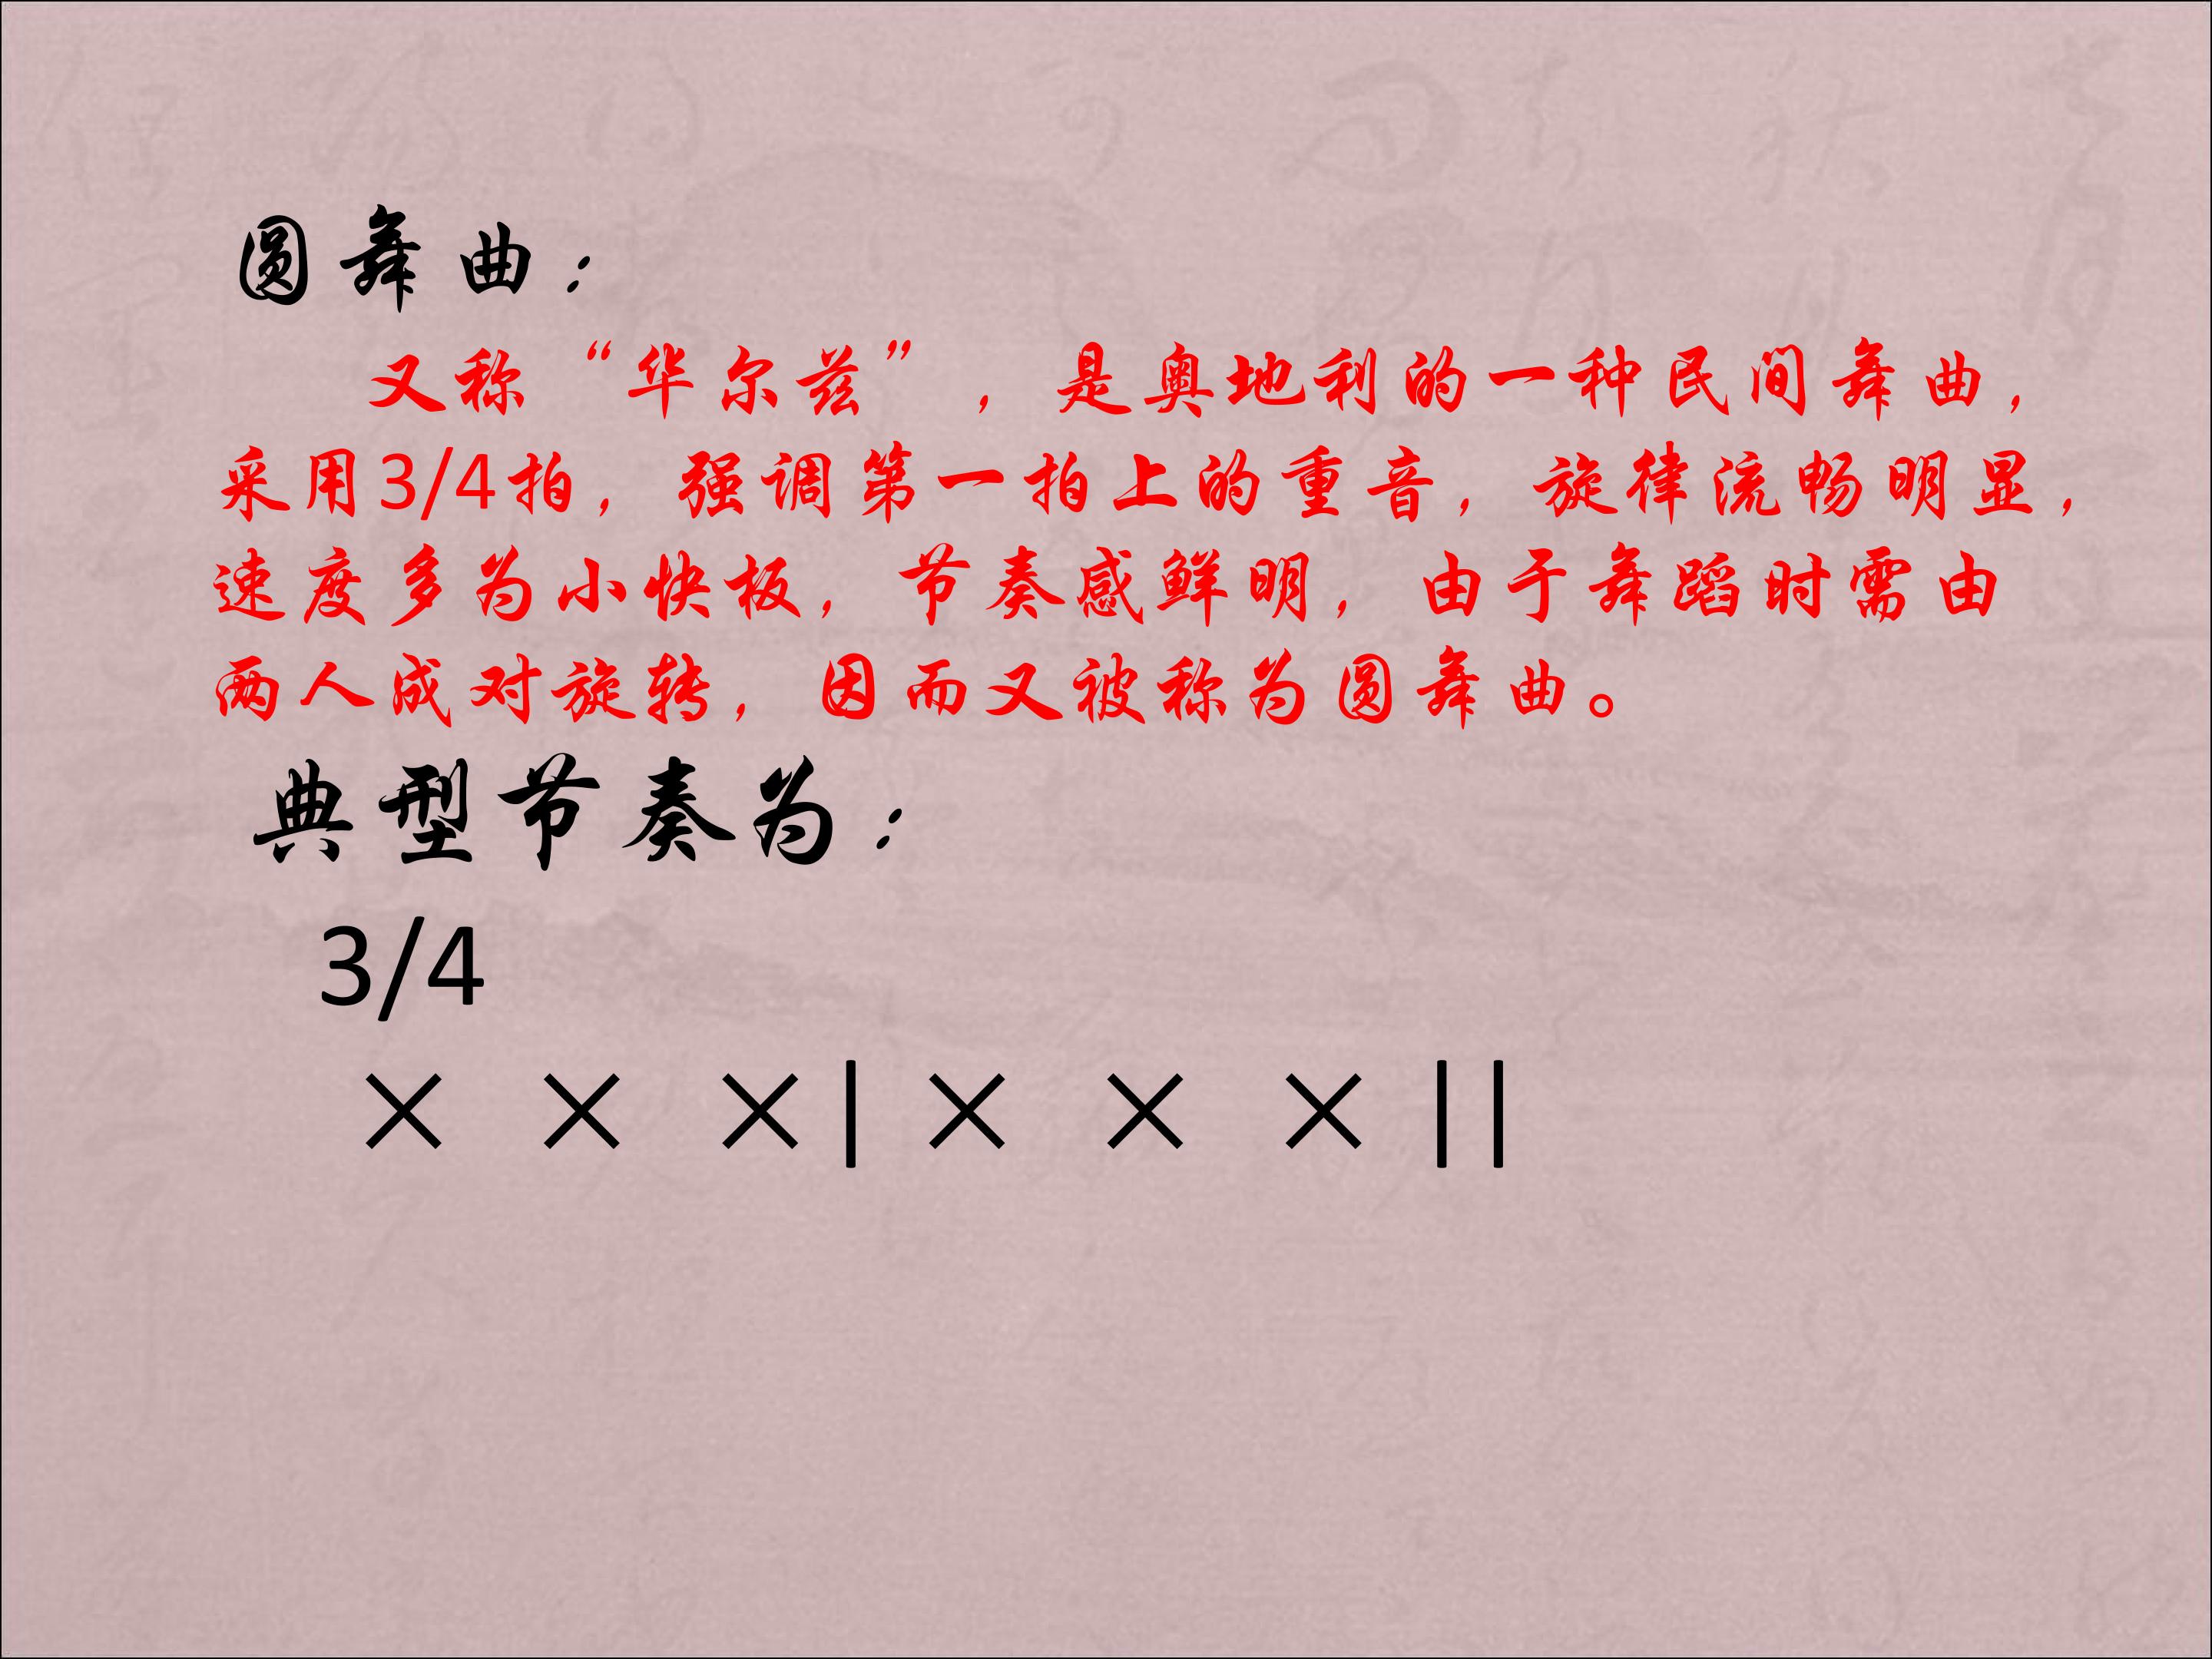 圆舞曲：
又称“华尔兹”，是奥地利的一种民间舞曲，
采用3/4拍，强调第一拍上的重音，旋律流畅明显，
速度多为小快板，节奏感鲜明，由于舞蹈时需由
两人成对旋转，因而又被称为圆舞曲。
典型节奏为：
3/4
× × ×| × × × ||